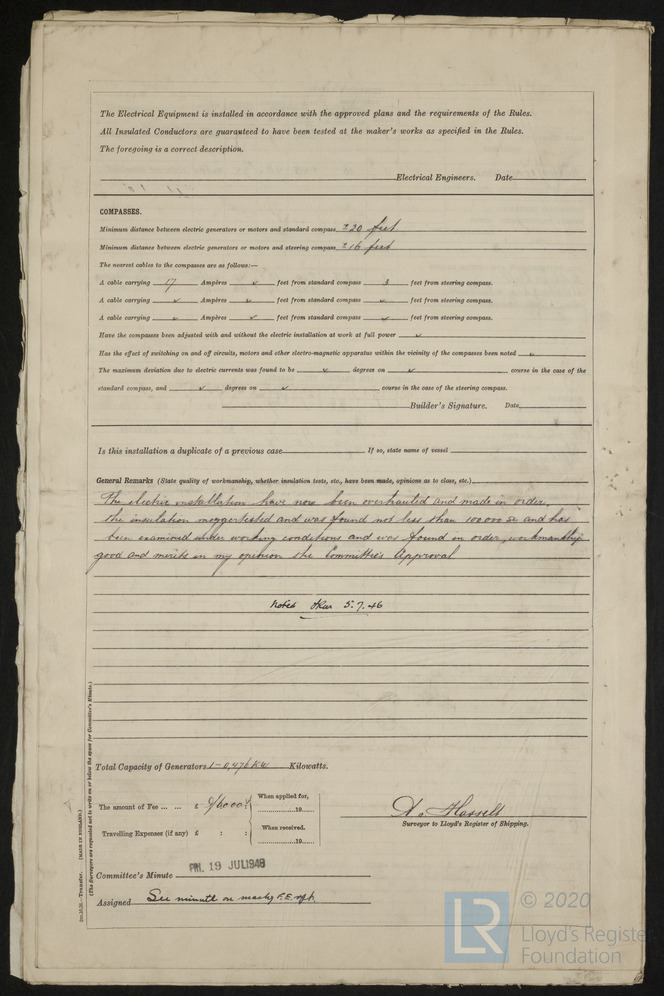 The Electrical Equipment is installed in accordance with the approved plans and the requirements of the Rules.
All Insulated Conductors are guaranteed to have been tested at the maker's works as specified in the Rules.
The foregoing is a correct description.
Electrical Engineers. Date
COMPASSES.
Minimum distance between electric generators or motors and standard compass ± 20 feet
Minimum distance between electric generators or motors and steering compass ± 16 feet
The nearest cables to the compasses are as follows:—
A cable carrying 17 Ampères ✓ feet from standard compass 3 feet from steering compass.
A cable carrying ✓ Ampères ✓ feet from standard compass ✓ feet from steering compass.
A cable carrying ✓ Ampères ✓ feet from standard compass ✓ feet from steering compass.
Have the compasses been adjusted with and without the electric installation at work at full power ✓
Has the effect of switching on and off circuits, motors and other electro-magnetic apparatus within the vicinity of the compasses been noted ✓
The maximum deviation due to electric currents was found to be ✓ degrees on ✓ course in the case of the
standard compass, and ✓ degrees on ✓ course in the case of the steering compass.
Builder's Signature. Date
Is this installation a duplicate of a previous case If so, state name of vessel
General Remarks (State quality of workmanship, whether insulation tests, etc., have been made, opinions as to class, etc.)
The electric installation have now been overhauled and made in order,
the insulation meggertested and was found not less than 100.000 Ω and has
been examined under working conditions and was found in order, workmanship
good and merits in my opinion the Committee's Approval
Noted 5.7.46
Total Capacity of Generators 1-0,476 KW Kilowatts.
The amount of Fee ... ... £ : : When applied for, 19
Travelling Expenses (if any) £ : : When received, 19
A. Hasselt
Surveyor to Lloyd's Register of Shipping.
Committee's Minute FRI. 19 JUL 1946
Assigned See minute on mchy F.E. rpt.
(MADE IN ENGLAND.)
Transfer.
(The Surveyors are requested not to write on or below the space for Committee's Minute.)
LR
© 2020
Lloyd's Register
Foundation